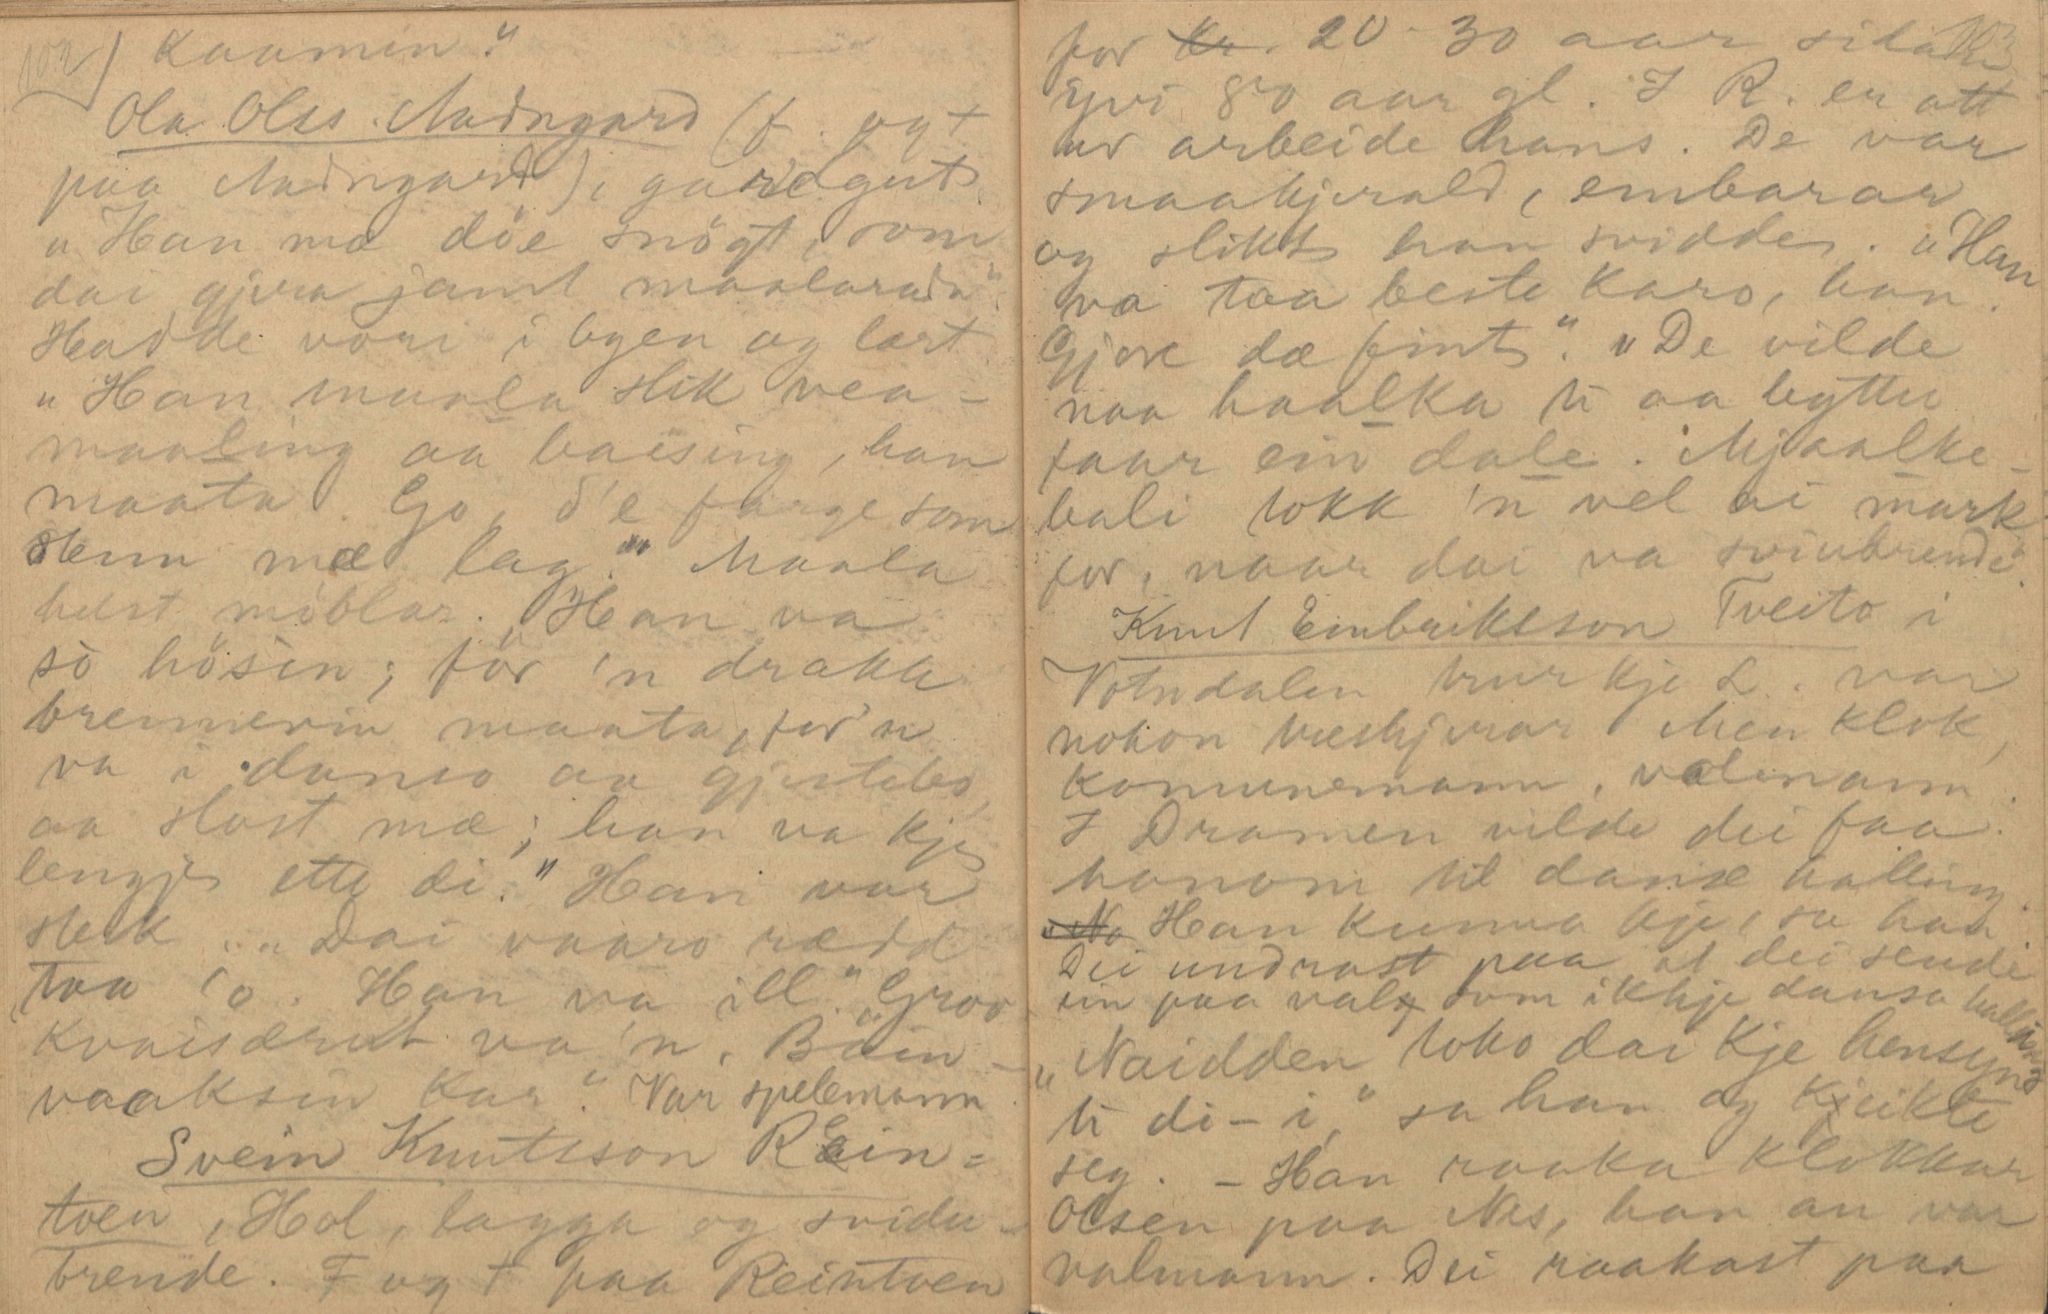 102) kaamin."
Ola Olss. Aadngard (f. og †
paa Aadngard), gardsgut.
"Han mæ döe snögt, som
dai gjera jamt maalarada".
Hadde vori i byen og lært.
"Han maala slik vea-
maaling aa baising, han
maata. Go, d'e farge som
stenn mæ lag." Maala
helst möblar. "Han va
so hösin; för 'n drakk
brennevin maata, for 'n
va i danso aa gjestebo,
aa slost mæ; han va kje
lengje ette di." Han var
sterk. "Dai vaaro rædd
taa 'o. Han va ill." "Grov
kvaisdrut va 'n. Bäin-
vaaksin kar." Var spelemann.
Svein Knutsson Rein-
toen, Hol, lagga og svidu-
brende. F og † paa Reintoen
103
for kr. 20-30 aar sidan
yvi 80 aar gl. I R. er att
av arbeide hans. De var
smaakjerald, embarar
og slikt han svidde. "Han
va taa beste karo, han
gjore dæ fint." "De vilde
naa haalka ti aa bytte
faar ein dale. Mjaalke-
bali tokk 'n vel ai mark
for, naar dai va sviubrende".
Knut Embriksson Tveito i
Votndalen trur kje L. var
nokon treskjerar. Men klok,
komunemann, valmann.
I Dramen vilde dei faa
honom til danse halling.
"Na Han kunna kje, sa han
Dei undrast paa at dei sende
ein paa valg som ikkje dansa halling
"Naidden toko dai kje hensyn
ti di - i," sa han og kjeikte
seg. - Han raaka klokkar
Olsen paa Nes, han au var
valmann. Dei raakast paa